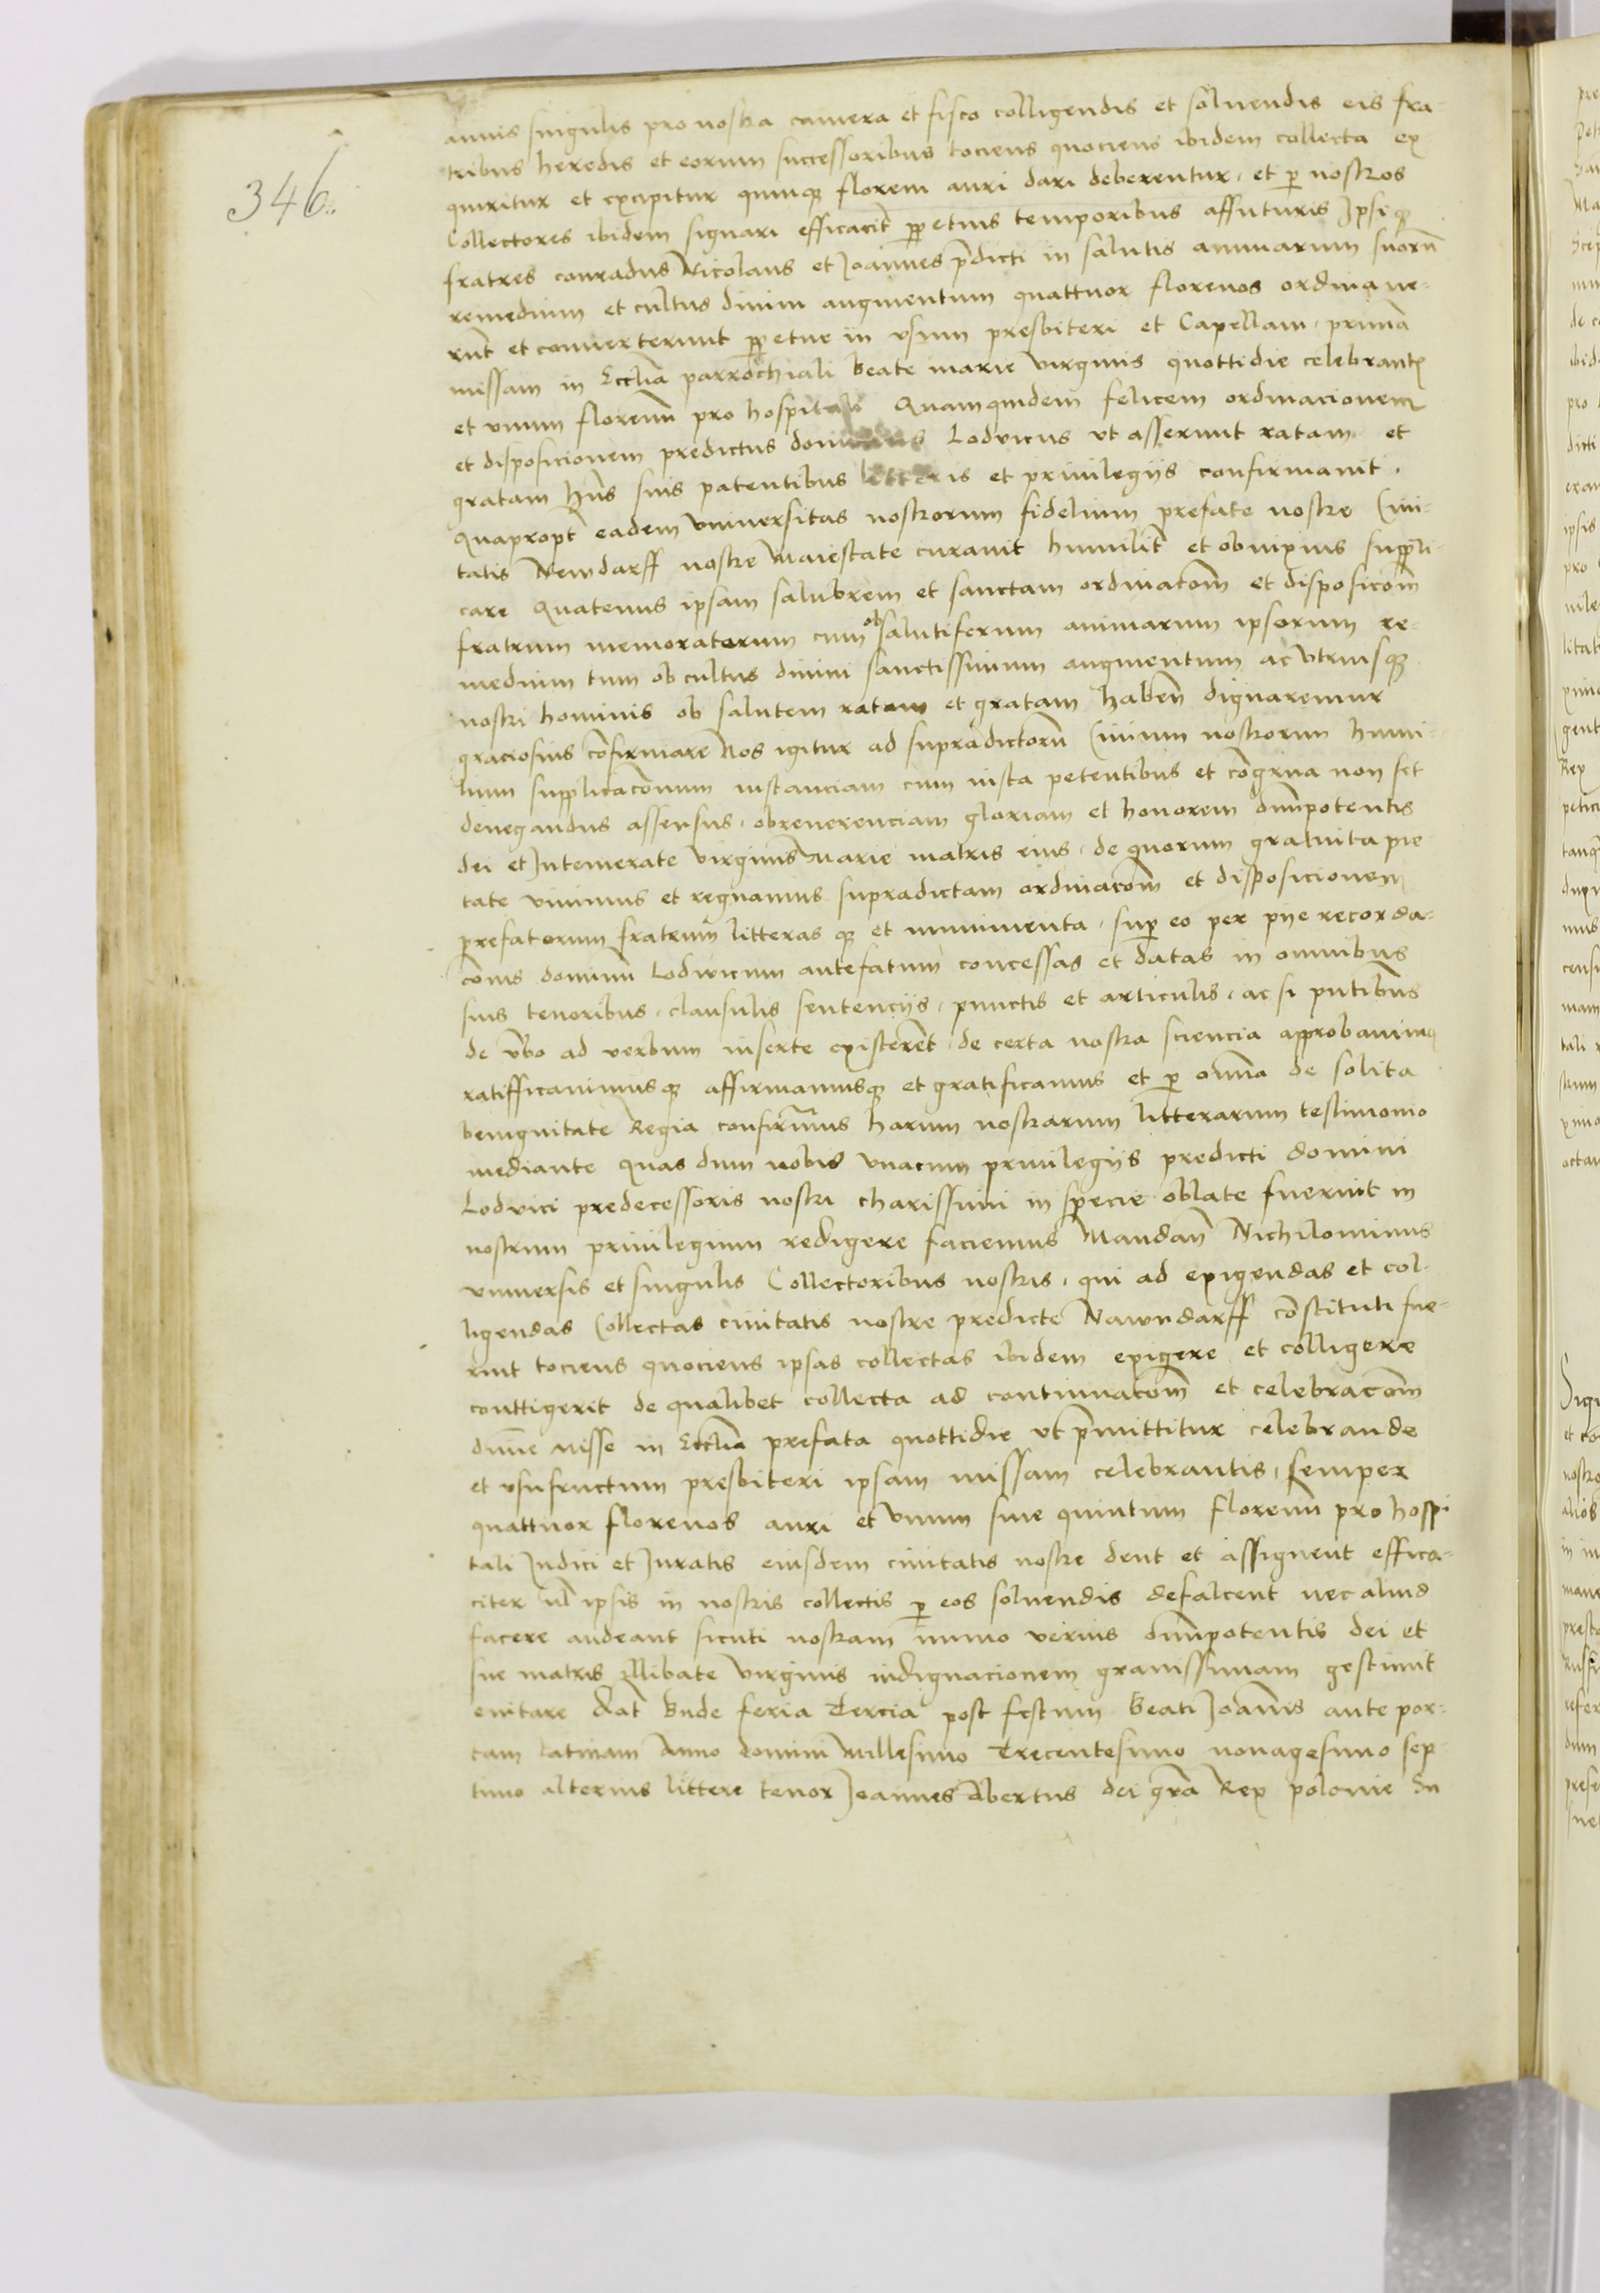 346.
annis singulis pro nostra camera et fisco colligendis et soluendis eis fra-
tribus heredis et eorum successoribus tociens quociens ibidem collecta ex
quiritur et excipitur quinq florem auri dari deberentur, et p nostros
Collectores ibidem signari efficacit ppetuis temporibus affuturis Ipsiq
fratres conradus Nicolaus et Joannes pdicti in salutis animarum suorū
remedium et cultus diuini augmentum quattuor florenos ordinaue-
rūt et conuerterunt ppetue in vsum presbiteri et Capellam, primā
missam in Ecclīa parrochiali beate marie virginis quottidie celebrant
et vnum florenū pro hospitali Quamquidem felicem ordinacionem
et disposicionem predictus dominus Lodvicus vt asserunt ratam et
gratam hns suis patentibus litteris et priuilegijs confirmauit.
Quapropt eadem vniuersitas nostrorum fidelium prefate nostre Ciui-
tatis Newdarff nostre Maiestate curauit humilit et obnixius suppli-
care Quatenus ipsam salubrem et sanctam ordinacōm et disposicōm
fratrum memoratorum cum ob salutiferum animarum ipsorum re-
medium tum ob cultus diuini sanctissimum augmentum ac vtriusq
nostri hominis ob salutem ratam et gratam haben dignaremur
graciosius cōfirmare Nos igitur ad supradictorū Ciuium nostrorum humi-
lium supplicacōnum instanciam cum iusta petentibus et cōgrua non sit
denegandus assensus, obreuerenciam gloriam et honorem omīpotentis
dei et Intemerate virginis Marie matris eius, de quorum gratuita pie
tate viuimus et regnamus supradictam ordinacōm et disposicionem
prefatorum fratrum litteras q et munimenta, sup eo per pije recorda-
cōnis dominū Lodvicum antefatum concessas et datas in omnibus
suis tenoribus, clausulis sentencijs, punctis et articulis, ac si pntibus
de vbo ad verbum inserte existerēt de certa nostra sciencia approbauim9
ratifficauimusq affirmamusq et gratificamus et p omīa de solita
benignitate Regia confirmus harum nostrarum litterarum testimonio
mediante Quas dum nobis vnacum priuilegijs predicti domini
Lodvici predecessoris nostri charissimi in specie oblate fuerint in
nostrum priuilegium redigere faciemus Mandan Nichilominus
vniuersis et singulis Collectoribus nostris, qui ad exigendas et col-
ligendas Collectas ciuitatis nostre predicte Nawndarff cōstituti fue-
rint tociens quociens ipsas collectas ibidem exigere et colligere
conttigerit de qualibet collecta ad continuacōm et celebracōm
diuīe Misse in Ecclīa prefata quottidie vt pmittitur celebrande
et vsufructum presbiteri ipsam missam celebrantis, semper
quattuor florenos auri et vnum siue quintum florenū pro hospi
tali Iudici et Iuratis eiusdem ciuitatis nostre dent et assignent effica-
citer ul ipsis in nostris collectis p eos soluendis defalcent nec aliud
facere audeant sicuti nostram immo verius omīpotentis dei et
sue matris Illibate virginis indignacionem grauissimam gestiunt
euitare Dat Bude feria Tercia post festum beati Joānis ante por-
tam latinam Anno domini Millesimo Trecentesimo nonagesimo sep
timo alterius littere tenor Joannes Abertus dei grā Rex polonie Su